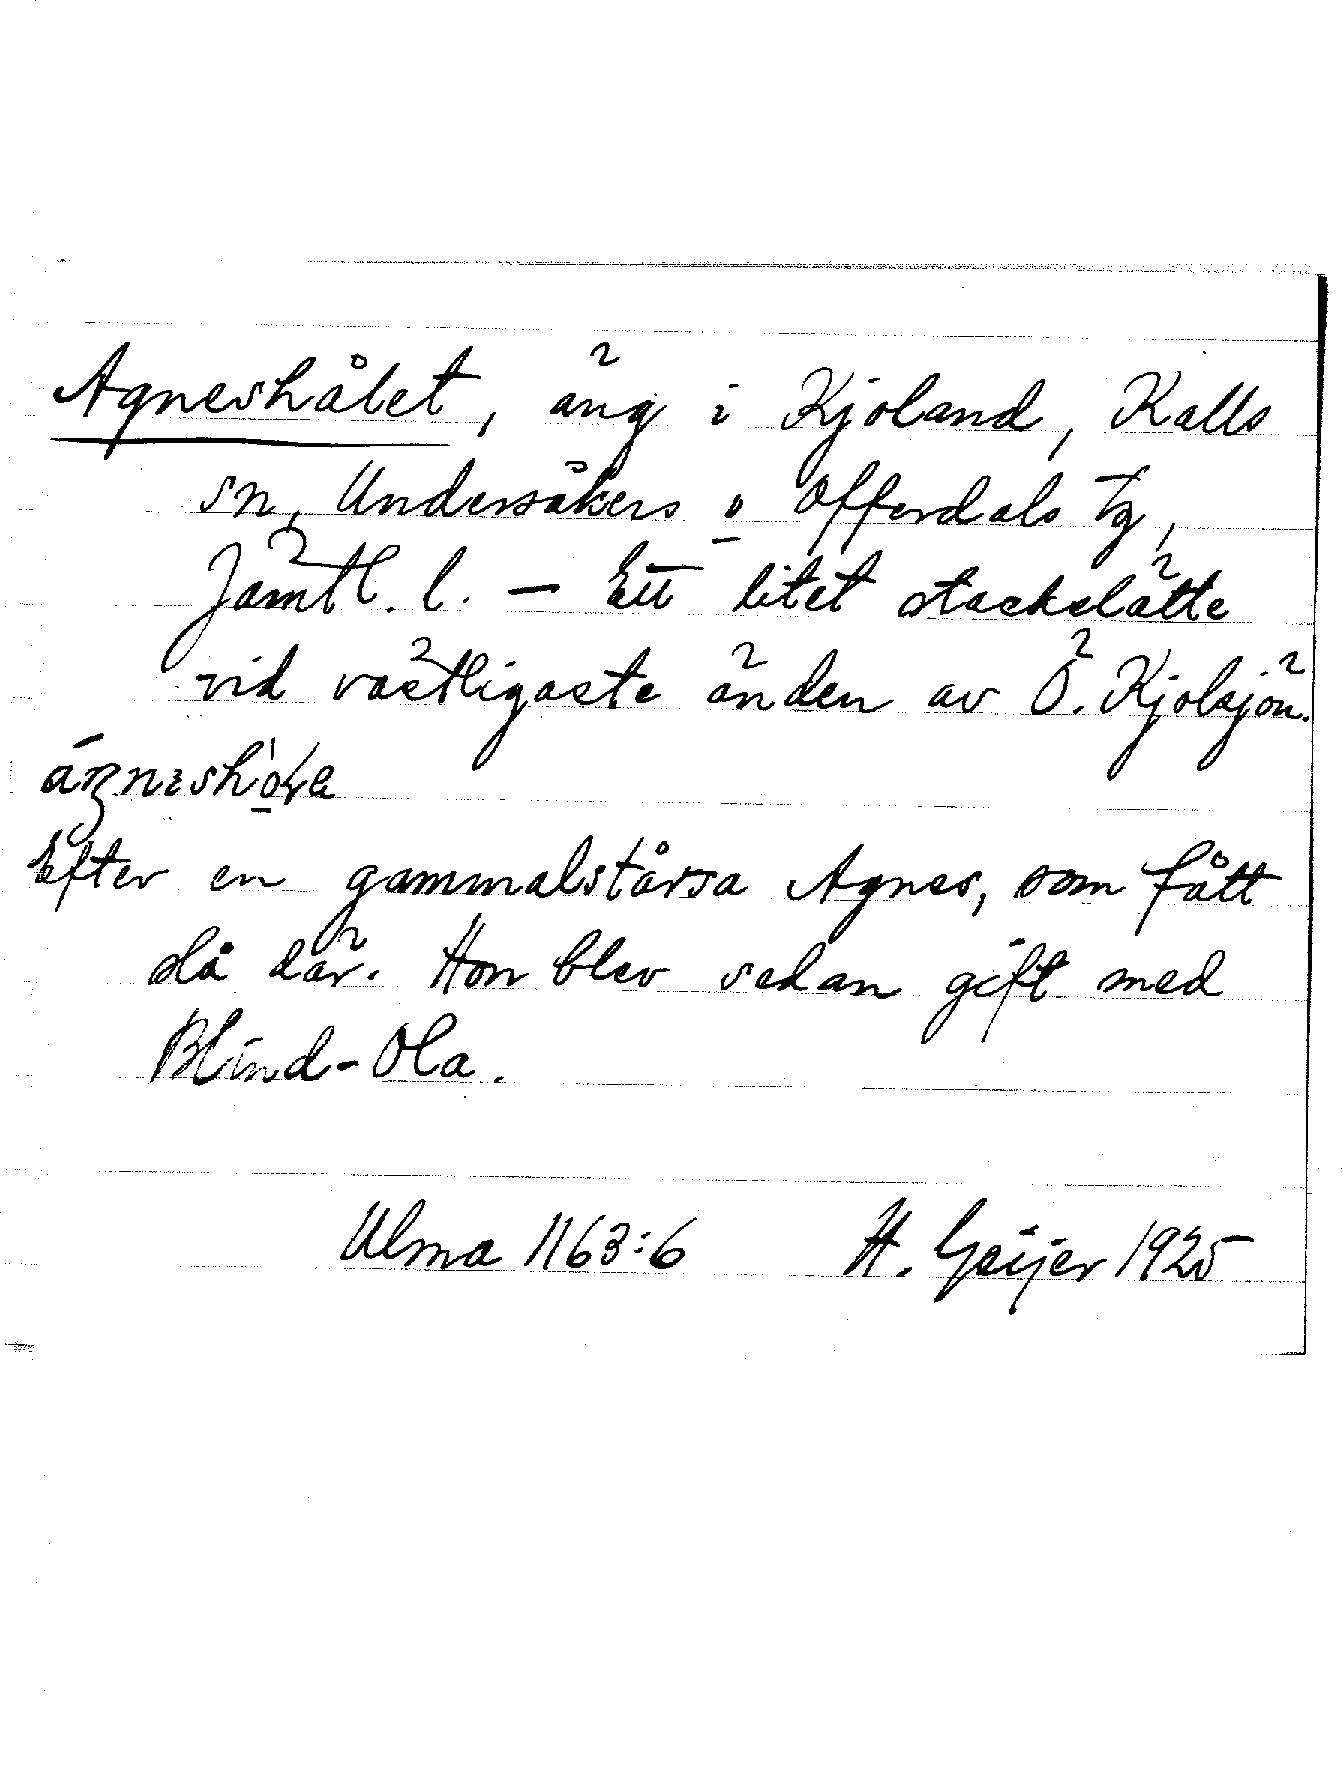 Agneshålet, äng i Kjoland, Kalls
sn, Undersåkers o Offerdals tg,
Jämtl. l. – Ett litet stackslätte
vid västligaste änden av Ö. Kjolsjön.
Efter en gammalstårsa Agnes, som fått
slå där. Hon blev sedan gift med
Blind-Ola.
Ulma 1163:6 H. Geijer 1925